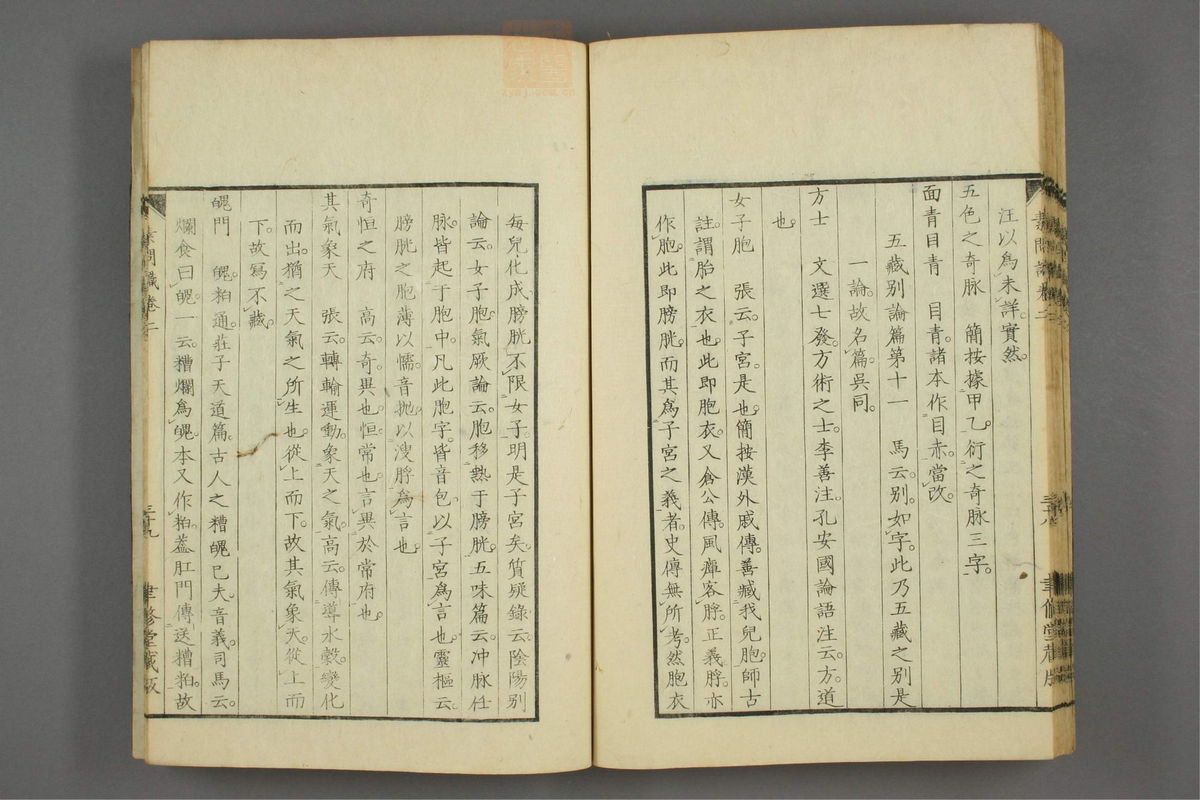 汪以爲未詳。實然。
五色之奇脉　簡按據甲乙。衍之奇脉三字。
面青目青　目青。諸本作目赤。當改。
五藏別論篇第十一　馬云。別。如字。此乃五藏之別是
一論。故名篇。吳同。
方士　文選七發。方術之士。李善注。孔安國論語注云。方。道
也。
女子胞　張云。子宮是也。簡按漢外戚傳。善臧我兒胞。師古
註。謂胎之衣也。此即胞衣。又倉公傳。風癉客脬。正義。脬。亦
作胞。此即膀胱。而其爲子宮之義者。史傳無所考。然胞衣
素問識卷二
三十八
聿修堂藏版
每兒化成。膀胱不限女子。明是子宮矣。質疑錄云。陰陽別
論云。女子胞。氣厥論云。胞移熱于膀胱。五味篇云。冲脉任
脉。皆起于胞中。凡此胞字。皆音包。以子宮爲言也。靈樞云。
膀胱之胞薄以懦。音抛。以溲脬爲言也。
奇恒之府　高云。奇。異也。恒。常也。言異於常府也。
其氣象天　張云。轉輸運動。象天之氣。高云。傳導水穀。變化
而出。猶之天氣之所生也。從上而下。故其氣象天。從上而
下。故寫不藏。
魄門　魄。粕通。莊子天道篇。古人之糟魄已夫。音義。司馬云。
爛食曰魄。一云。糟爛爲魄。本又作粕。蓋肛門傳送糟粕。故
素問識卷二
三十九
聿修堂藏版